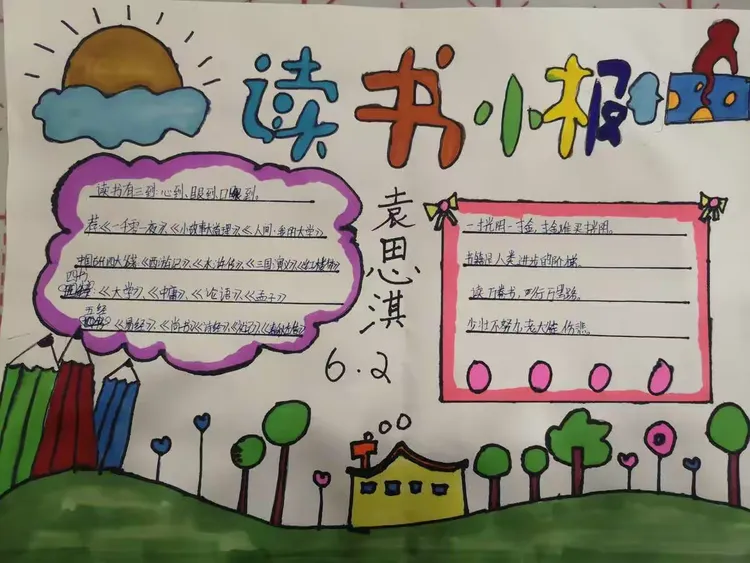 读书小报
读书有三到:心到、眼到、口到。
荐《一千零一夜》、《小故事大道理》、《人间·我的大学》
中国的四大名著《西游记》、《水浒传》、《三国演义》、《红楼梦》
四书
《大学》、《中庸》、《论语》、《孟子》
五经
《易经》、《尚书》、《诗经》、《礼记》、《春秋》
袁思淇
6.2
一寸光阴一寸金,寸金难买寸光阴。
书籍是人类进步的阶梯。
读万卷书,行万里路。
少壮不努力,老大徒伤悲。